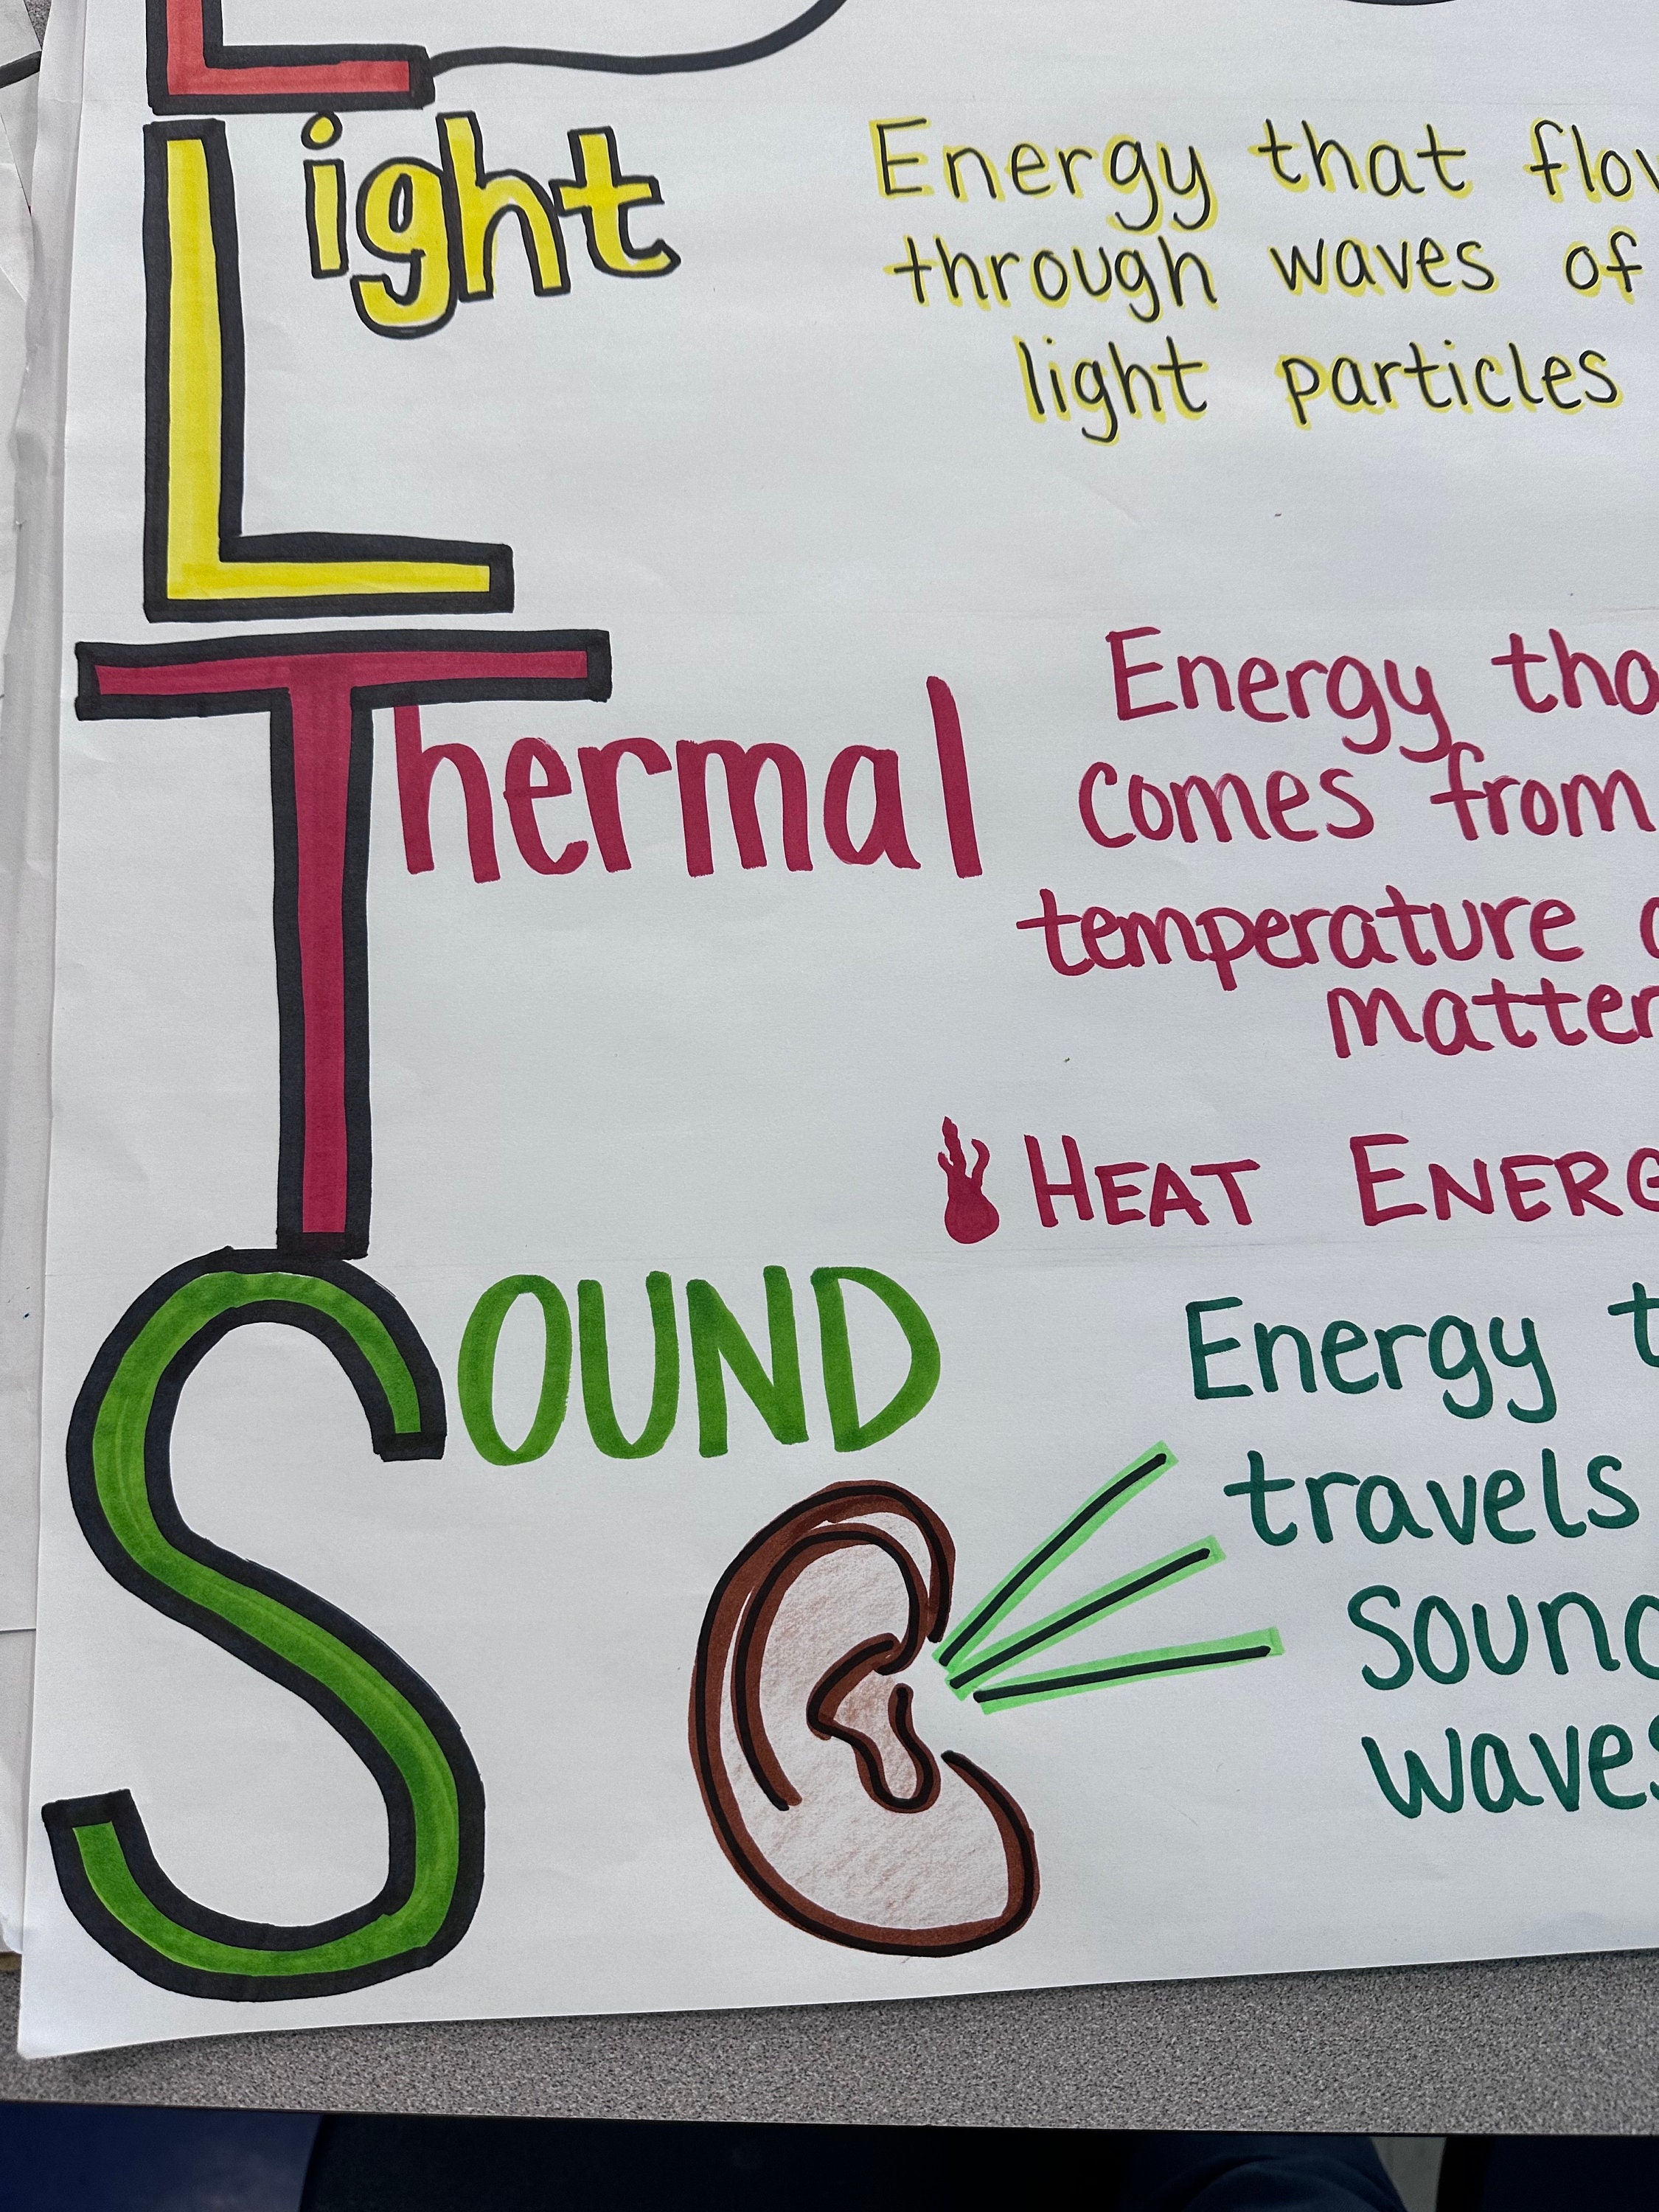 Light
Energy that flow
through waves of
light particles
Thermal
Energy tha
comes from
temperature
matter
HEAT ENERG
SOUND
Energy t
travels
sound
waves